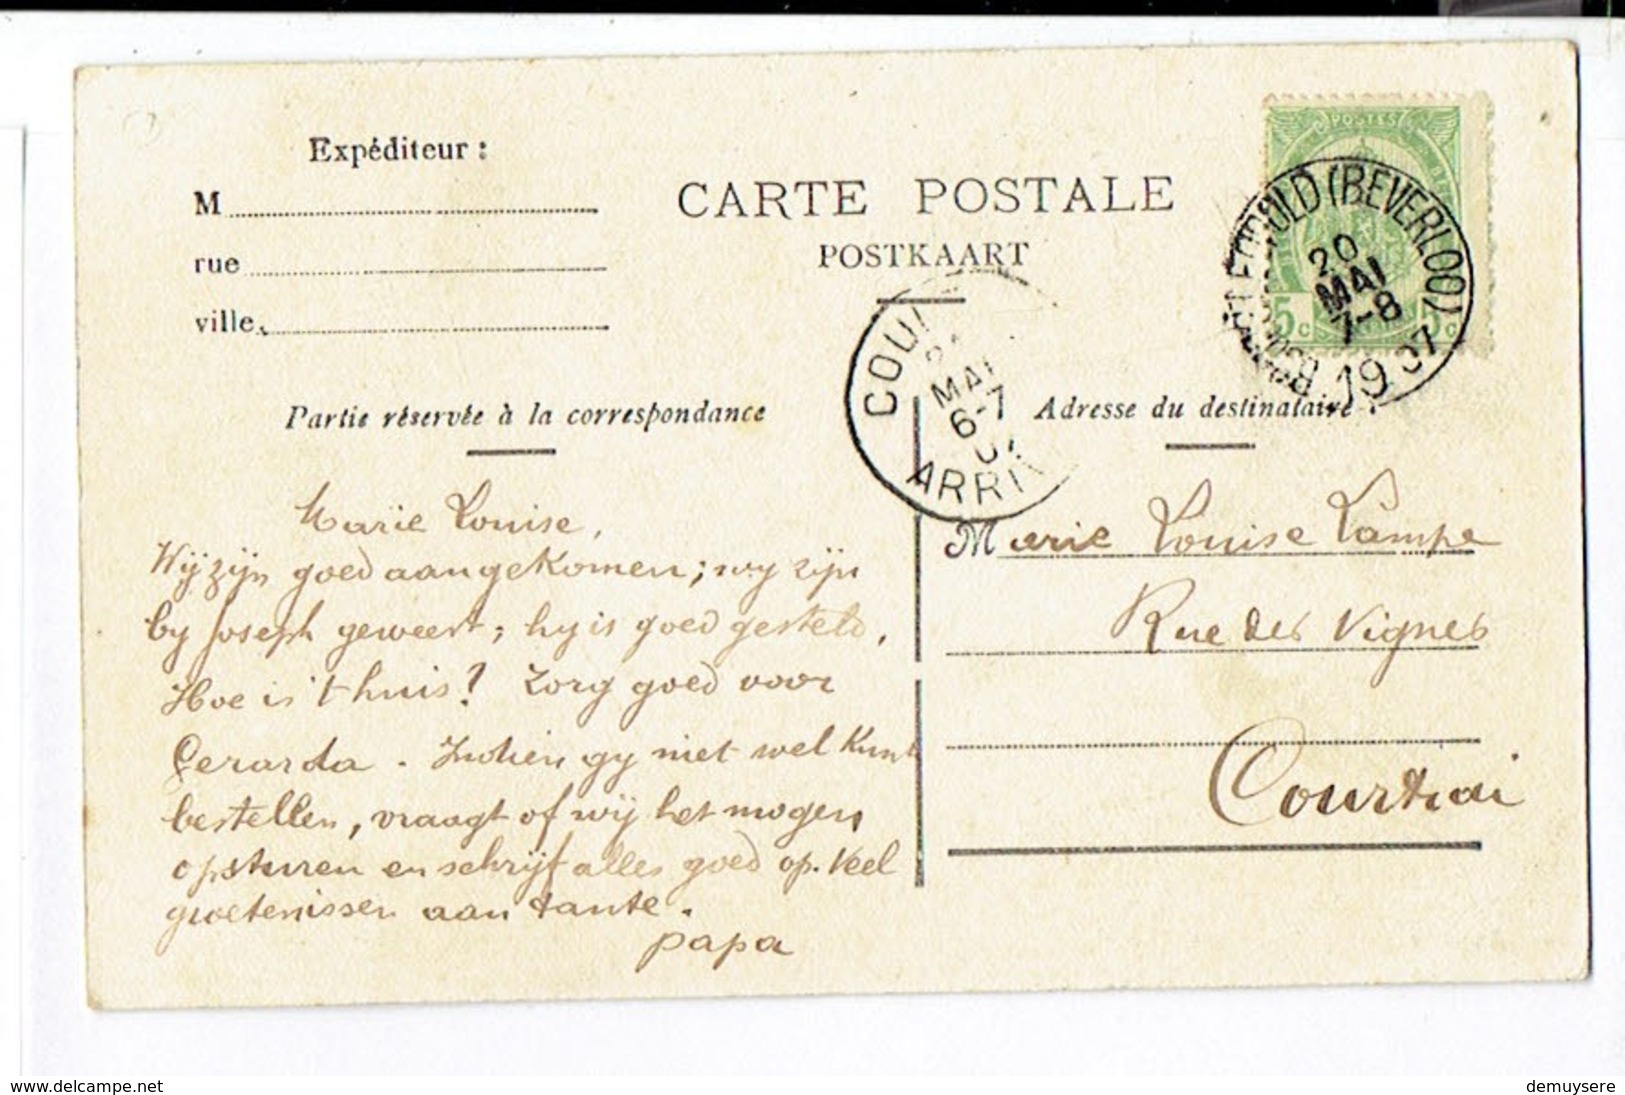 Expéditeur :
M
rue
ville
CARTE POSTALE
POSTKAART
POSTES
5c 5c
LEOPOLD (BEVERLOO)
20
MAI
7-8
1907
COU
MAI
6-7
07
ARRI
Partie réservée à la correspondance
Adresse du destinataire :
Marie Louise,
Wij zijn goed aangekomen; wy zijn
by Joseph geweest; hy is goed gesteld,
Hoe is 't huis? Zorg goed voor
Gerarda. Indien gy niet wel kunt
bestellen, vraagt of wij het mogen
opsturen en schrijf alles goed op. Veel
groetenissen aan tante.
papa
Marie Louise Lampe
Rue des Vignes
Courtrai
www.delcampe.net
demuysere